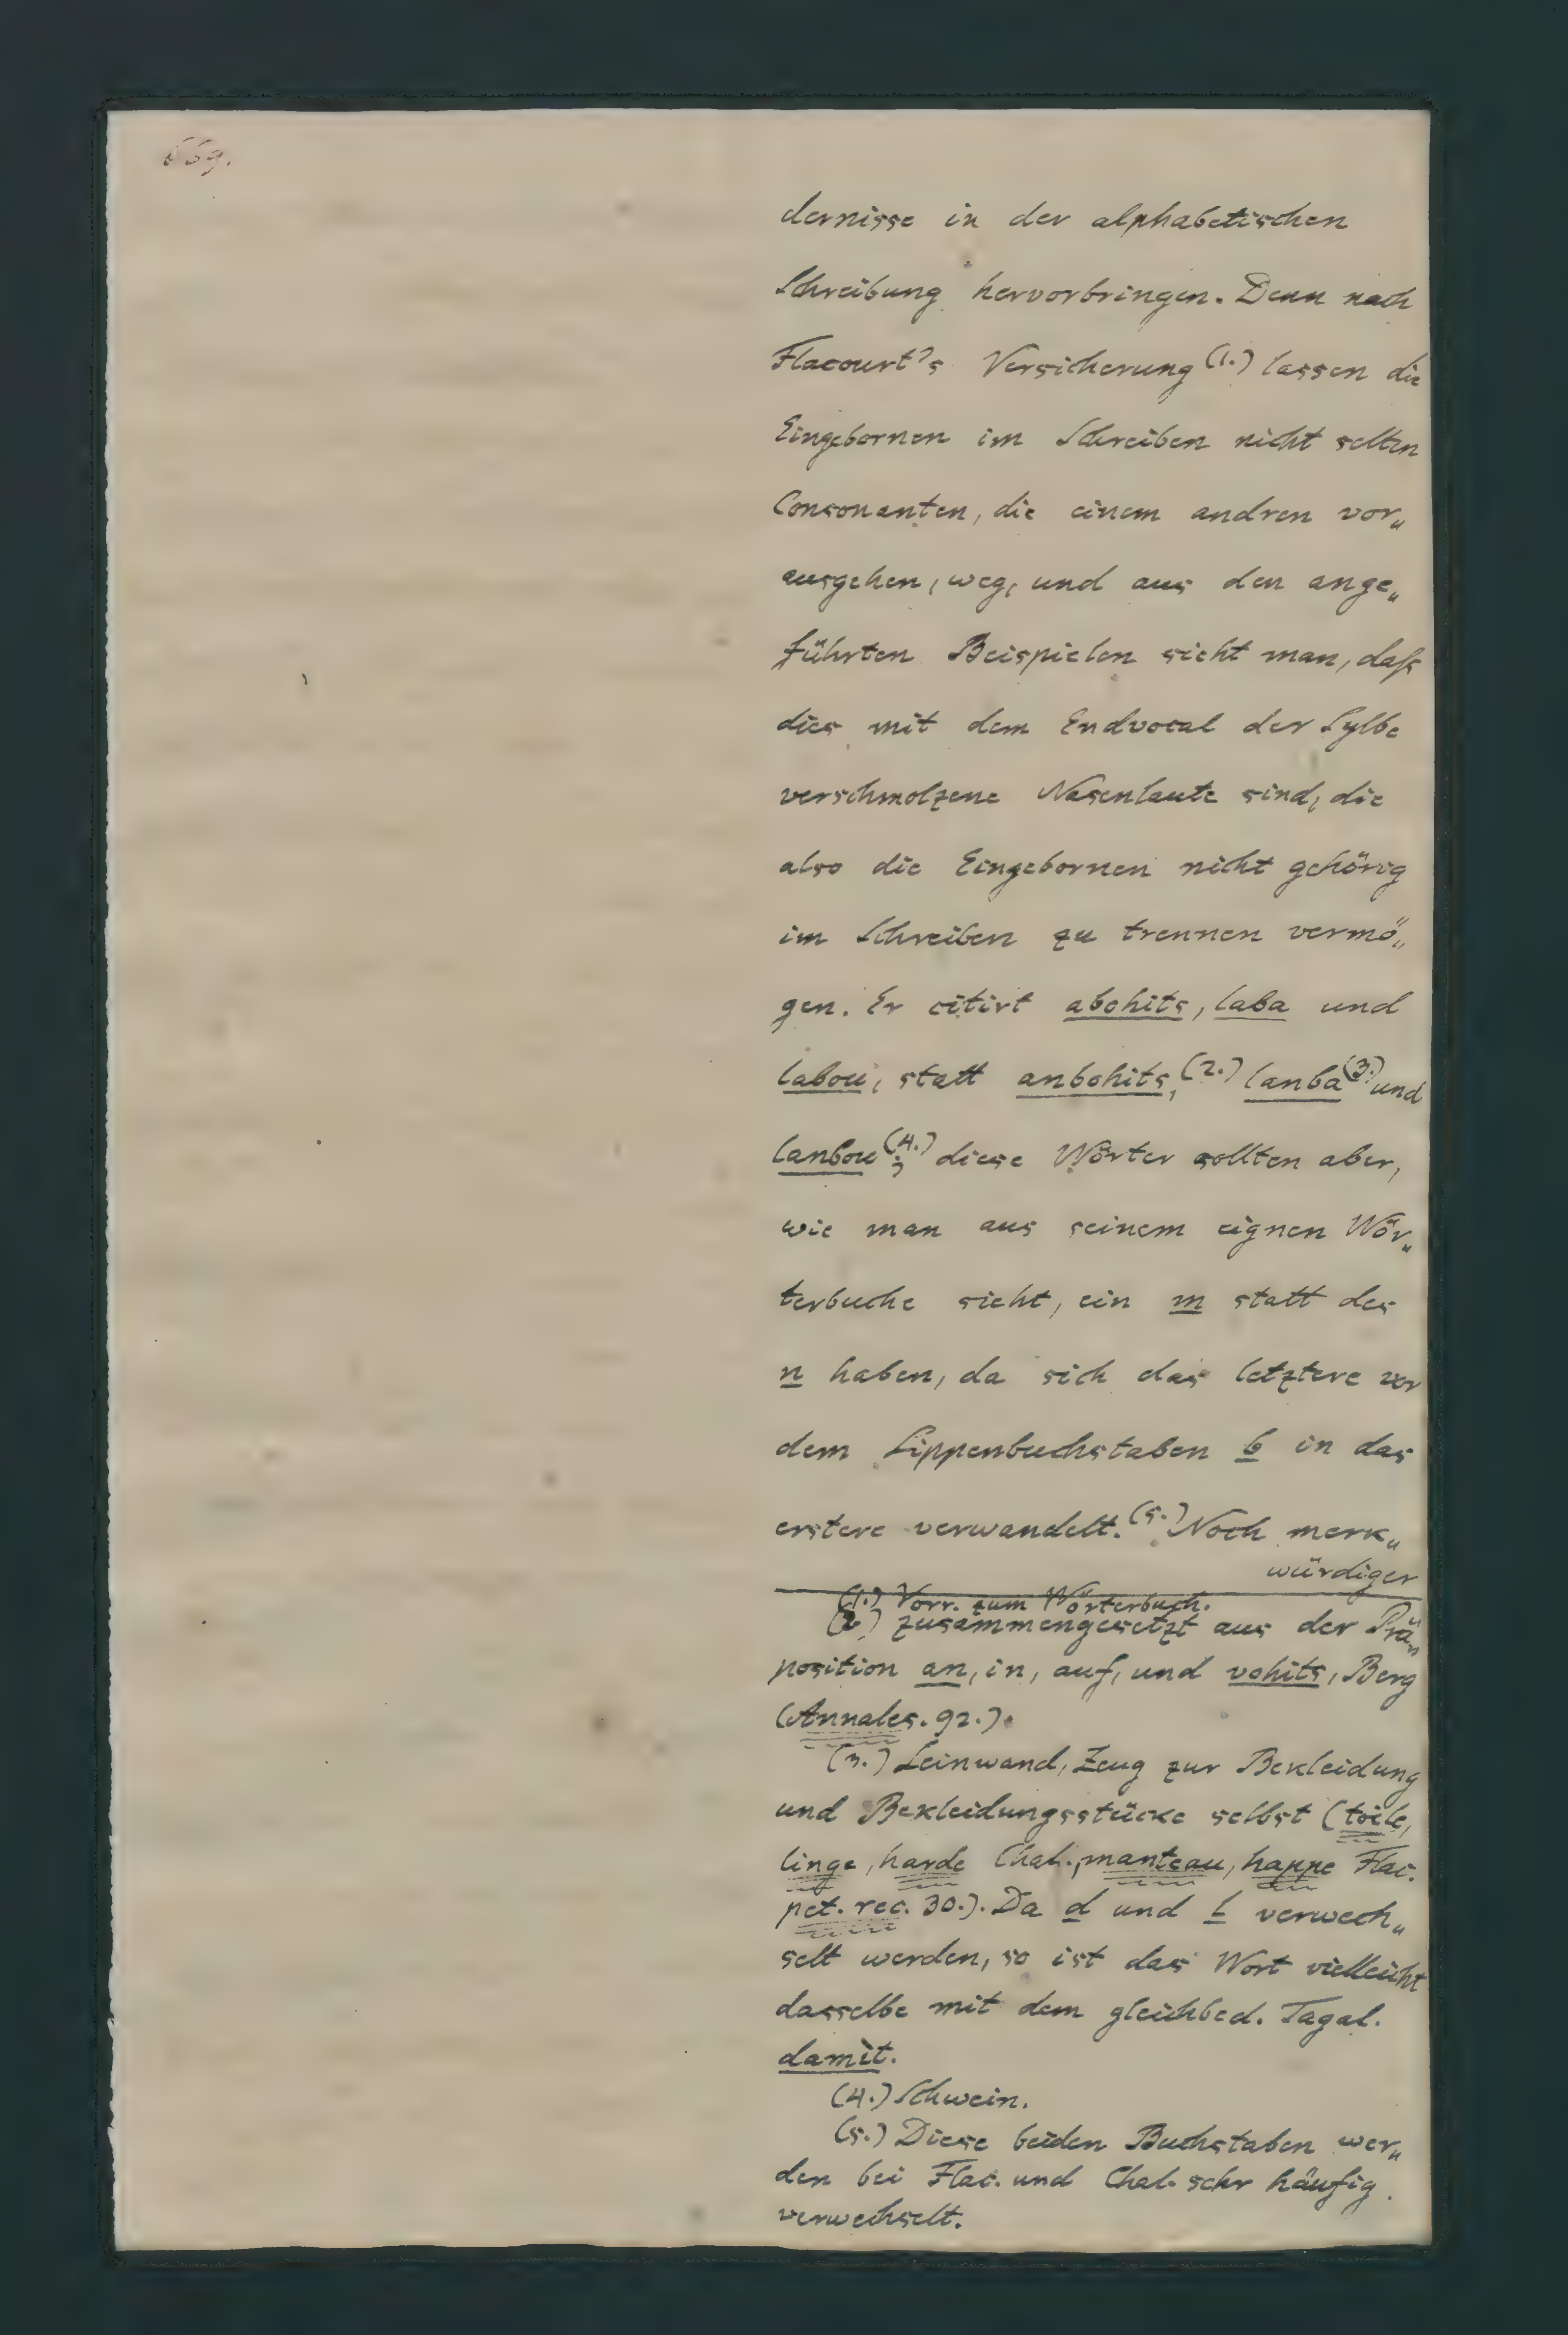 dernisse in der alphabetischen
Schreibung hervorbringen. Denn nach
Flacourt's Versicherung (1.) lassen die
Eingebornen im Schreiben nicht selten
Consonanten, die einem andren vor„
ausgehen, weg, und aus den ange„
führten Beispielen sieht man, daß
dies mit dem Endvocal der Sylbe
verschmolzene Nasenlaute sind, die
also die Eingebornen nicht gehörig
im Schreiben zu trennen vermö„
gen. Er citirt abohits, laba und
labou, statt anbohits, (2.) lanba (3.) und
lanbou (4.); diese Wörter sollten aber,
wie man aus seinem eignen Wör„
terbuche sieht, ein m statt des
n haben, da sich das letztere vor
dem Lippenbuchstaben b in das
erstere verwandelt. (5.) Noch merk„
würdiger
(1.) Vorr. zum Wörterbuch.
(2.) zusammengesetzt aus der Prä„
position an, in, auf, und vohits, Berg
(Annales. 92.).
(3.) Leinwand, Zeug zur Bekleidung
und Bekleidungsstücke selbst (toile,
linge, harde Chal., manteau, happe Flac.
pet. rec. 30.). Da d und l verwech„
selt werden, so ist das Wort vielleicht
dasselbe mit dem gleichbed. Tagal.
damit.
(4.) Schwein.
(5.) Diese beiden Buchstaben wer„
den bei Flac. und Chal. sehr häufig
verwechselt.